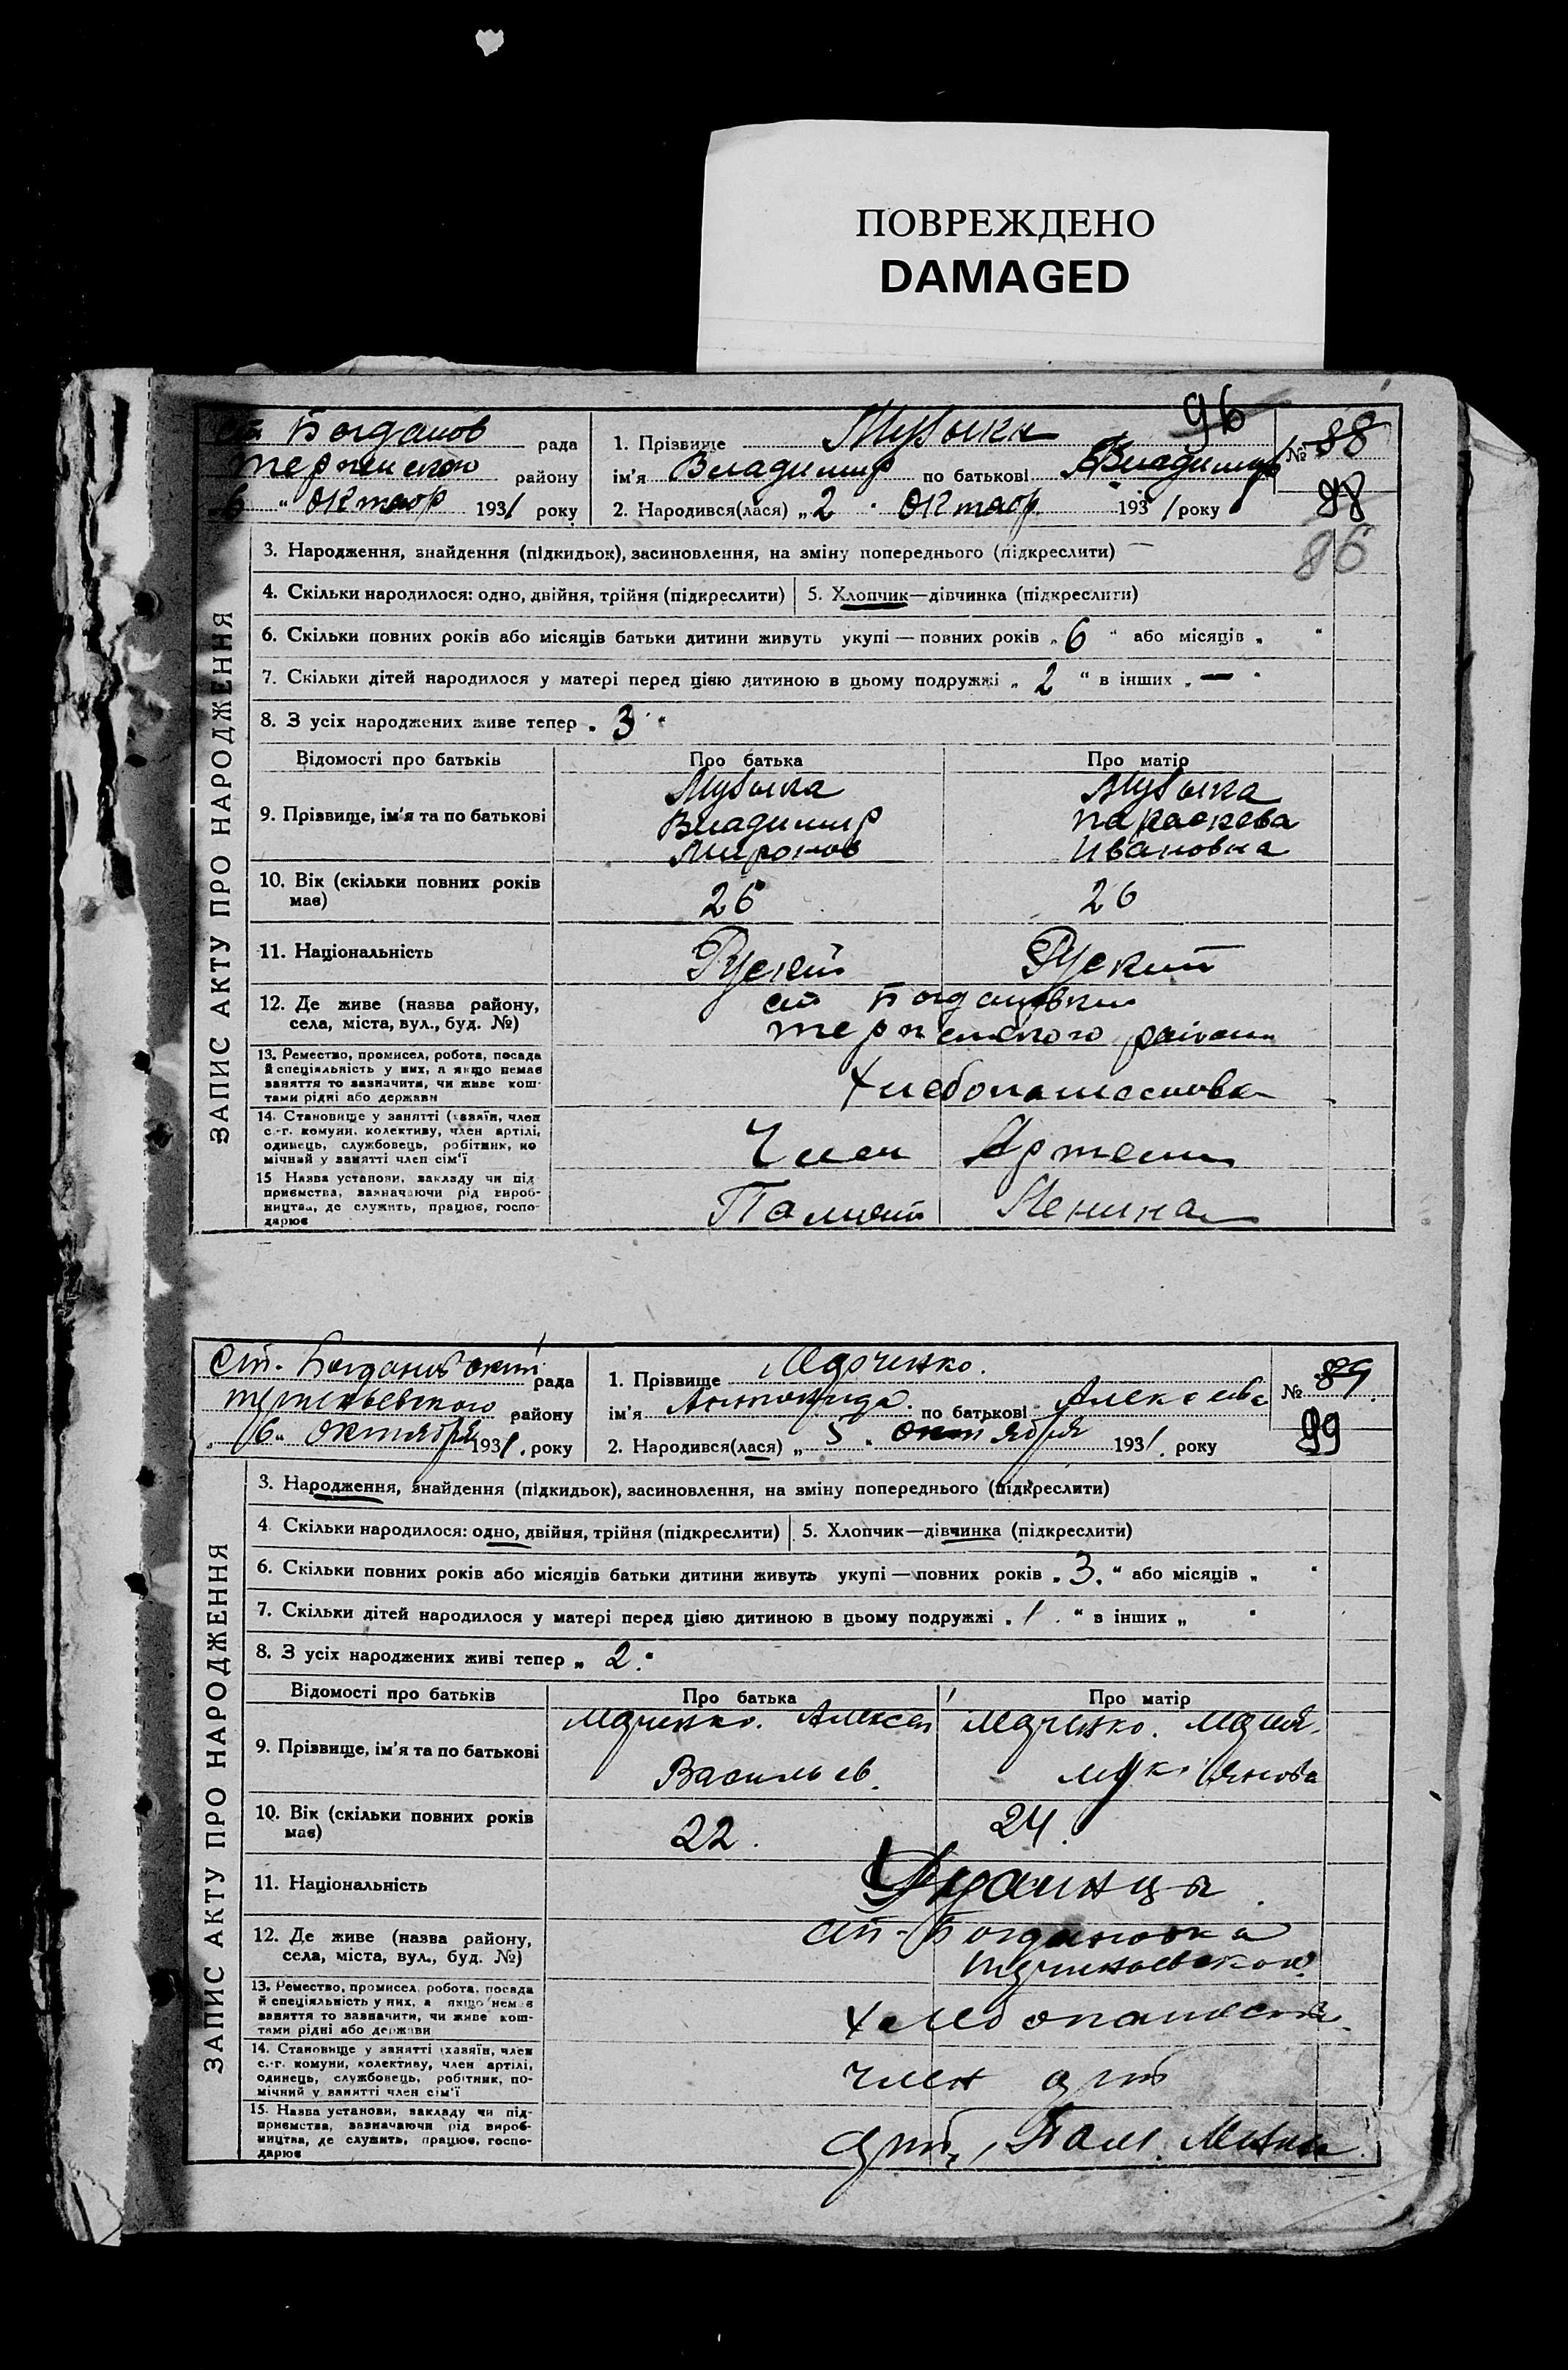 ПОВРЕЖДЕНО
DAMAGED
96
ст Богданов рада
района
6 " октяор 1931 року
1. Прізвище Музыка
ім'я Владимир по батькові Владимир
2. Народився(лася) „2 " октяор 1931 року
№ 88
98
86
ЗАПИС АКТУ ПРО НАРОДЖЕННЯ
3. Народження, знайдення (підкидьок), засиновлення, на зміну попереднього (підкреслити)
4. Скільки народилося: одно, двійня, трійня (підкреслити) 5. Хлопчик—дівчинка (підкреслити)
6. Скільки повних років або місяців батьки дитини живуть укупі — повних років „ 6 " або місяців „ "
7. Скільки дітей народилося у матері перед цією дитиною в цьому подружжі „ 2 " в інших „ — "
8. З усіх народжених живе тепер „ 3 "
Відомості про батьків Про батька Про матір
9. Прізвище, ім'я та по батькові
Музыка Музыка
Владимир Параскева
Миронов Ивановна
10. Вік (скільки повних років має) 26 26
11. Національність Руский Руский
12. Де живе (назва району, села, міста, вул., буд. №)
ст Богдановки
района
13. Ремество, промисел, робота, посада й спеціяльність у них, а якщо немає заняття то зазначити, чи живе коштами рідні або держави
14. Становище у занятті (хазяїн, член с.-г. комуни, колективу, член артілі, одинець, службовець, робітник, помічний у занятті член сім'ї
Член Артели
15 Назва установи, закладу чи підприємства, зазначаючи рід виробництва, де служить, працює, господарює
Памяти Ленина
Ст. Богдановский рада
району
6 " октября 1931. року
1. Прізвище Марченко.
ім'я Антонида по батькові Алексеева
2. Народився(лася) „ 5 " октября 1931. року
№ 89.
99
ЗАПИС АКТУ ПРО НАРОДЖЕННЯ
3. Народження, знайдення (підкидьок), засиновлення, на зміну попереднього (підкреслити)
4 Скільки народилося: одно, двійня, трійня (підкреслити) 5. Хлопчик—дівчинка (підкреслити)
6. Скільки повних років або місяців батьки дитини живуть укупі — повних років „ 3. " або місяців „ "
7. Скільки дітей народилося у матері перед цією дитиною в цьому подружжі „ 1 . " в інших „ "
8. З усіх народжених живі тепер „ 2. "
Відомості про батьків Про батька Про матір
9. Прізвище, ім'я та по батькові
Марченко. Алексей Марченко. Мария.
Васильев.
10. Вік (скільки повних років має) 22. 24.
11. Національність Украинцы.
12. Де живе (назва району, села, міста, вул., буд. №)
ст-Богдановка
13. Ремество, промисел, робота, посада й спеціяльність у них, а якщо немає заняття то зазначити, чи живе коштами рідні або держави
14. Становище у занятті (хазяїн, член с.-г. комуни, колективу, член артілі, одинець, службовець, робітник, помічний у занятті член сім'ї
член арт
15. Назва установи, закладу чи підприємства, зазначаючи рід виробництва, де служить, працює, господарює
арт, Пам. Ленина